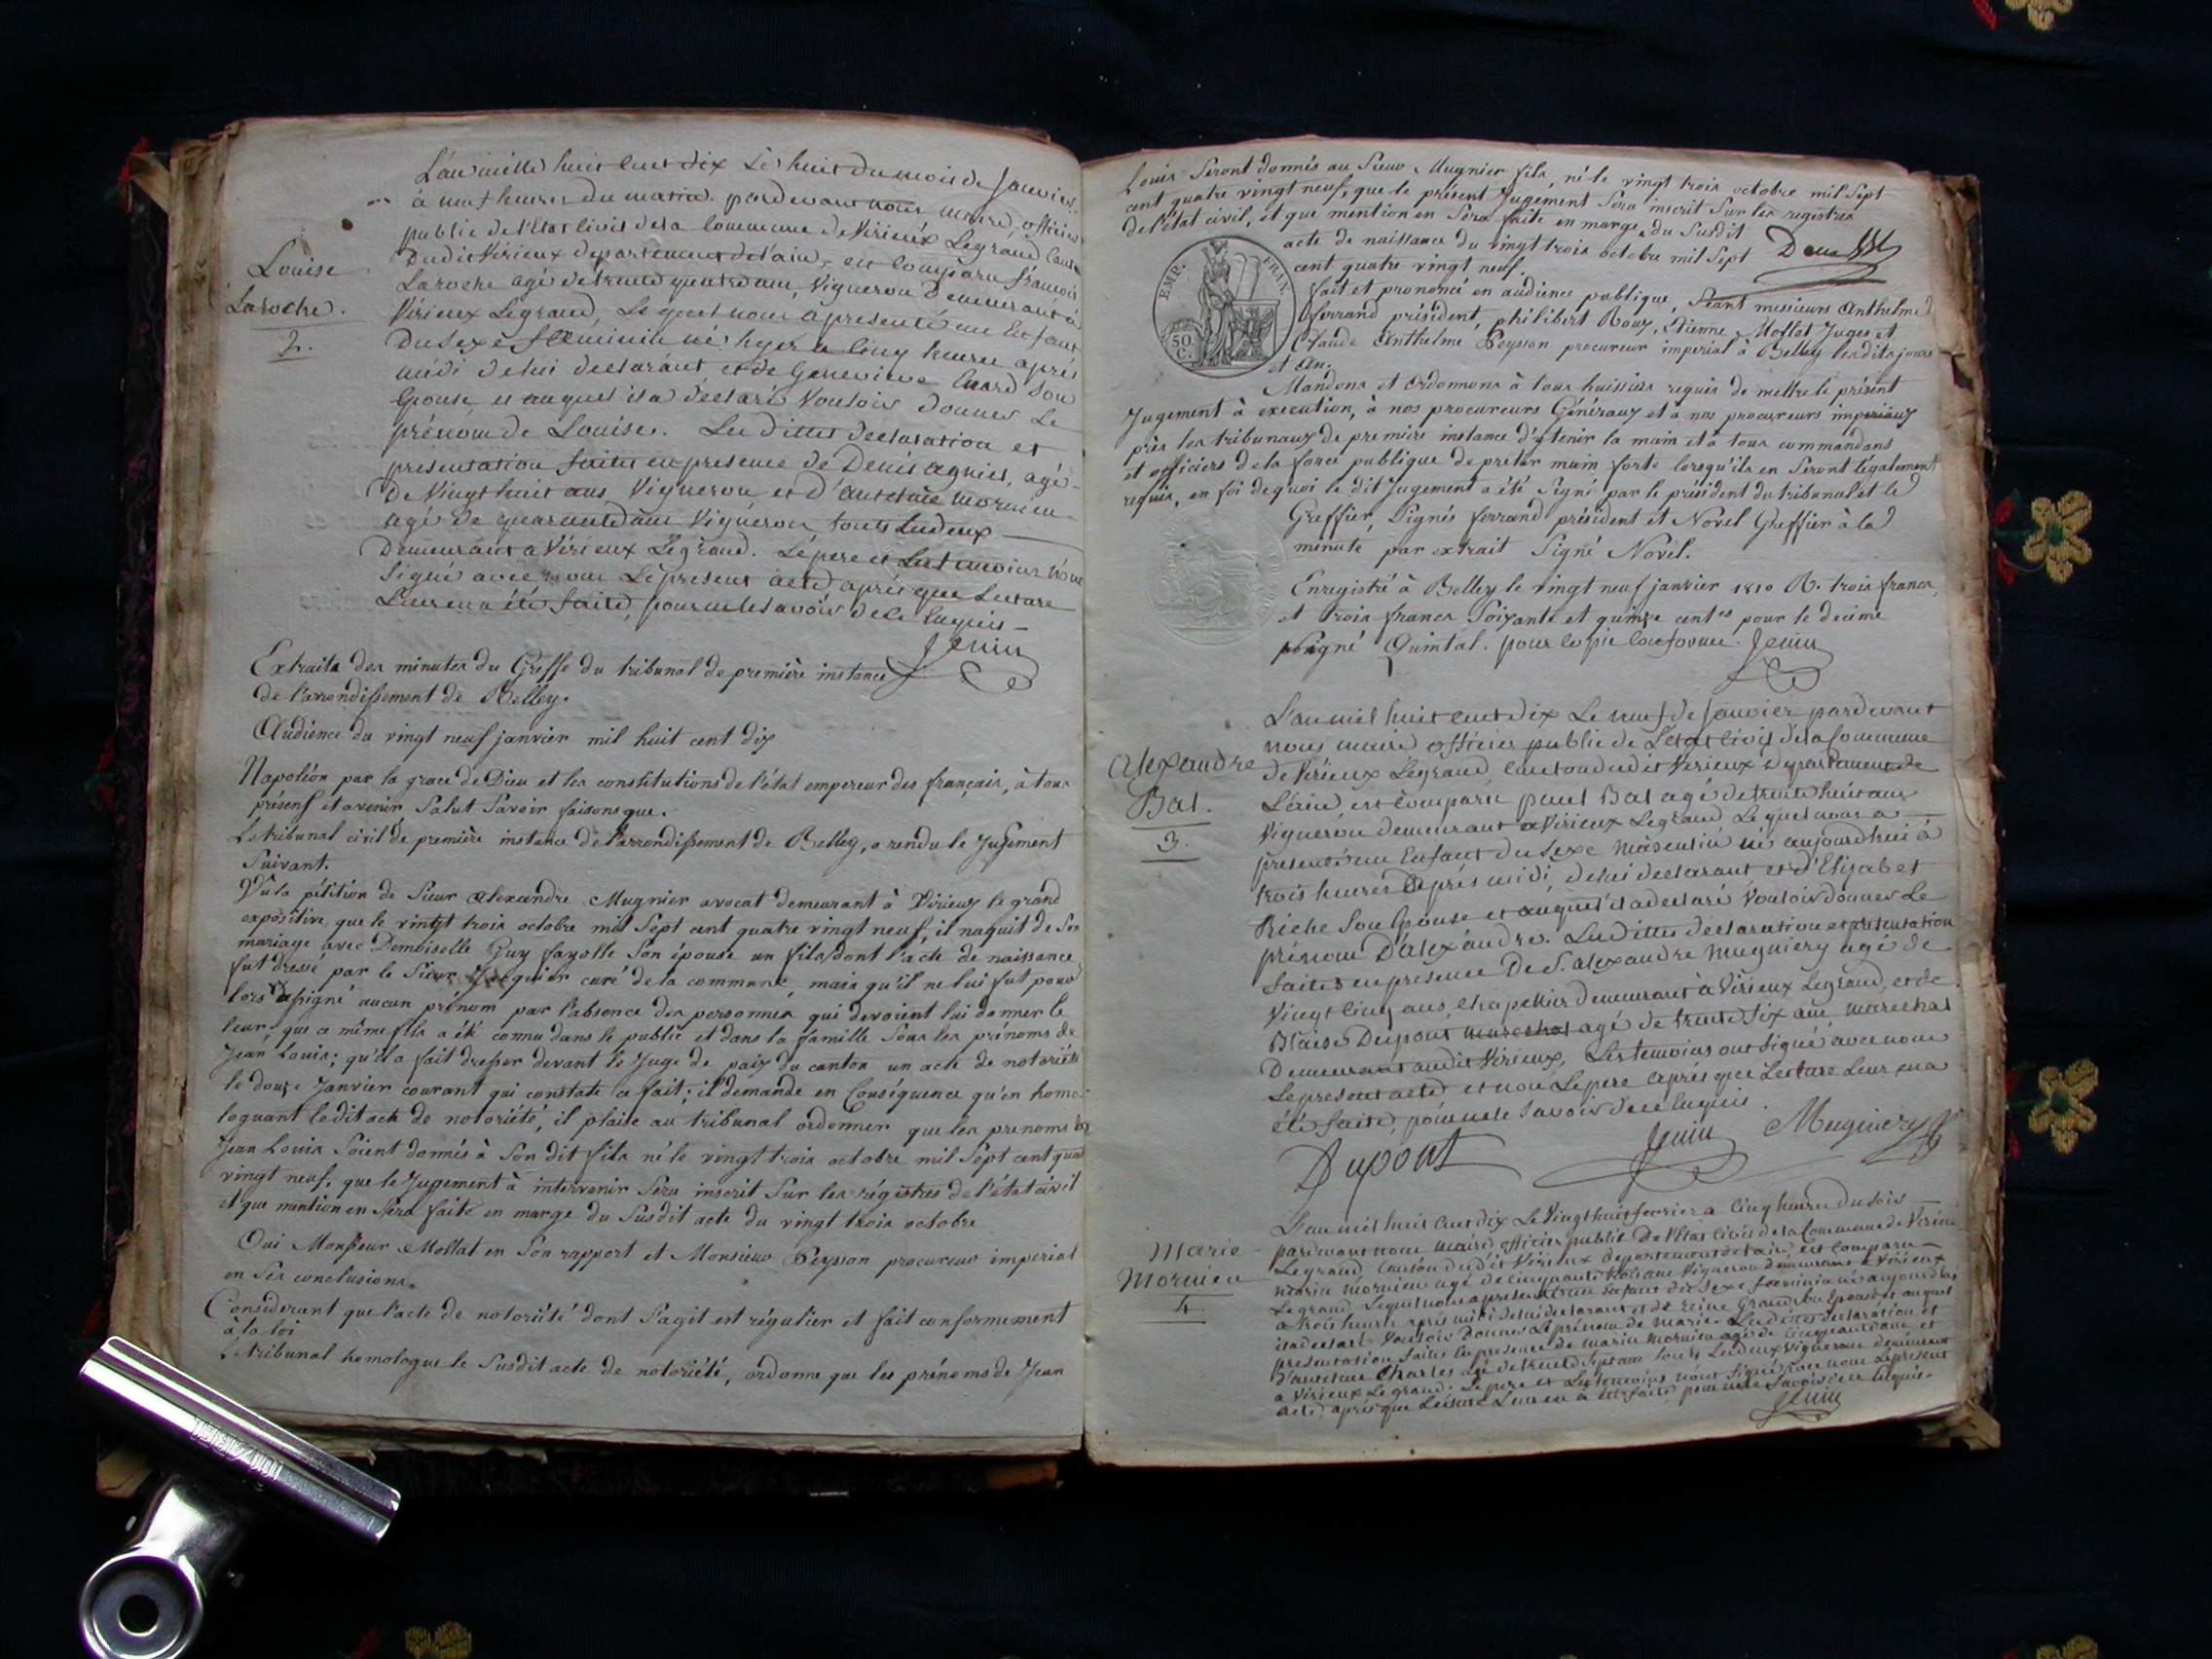 L'an mille huit cent dix Le huit du mois de Janvier
à neuf heures du matin pardevant nous maire, officier
public de l'Etat civil de la Commune de Virieux Legrand Canton
Dudit Virieux departement de l'ain, est Comparu françois
Laroche agé de trente quatre ans, Vigneron Demeurant à
Virieux Legrand, Lequel nous a presenté un Enfant
Du Sexe feminin né hyer a cinq heures après
midi de lui declarant et de Genevieve son
Epouse, et auquel il a déclaré Vouloir donner Le
prénom de Louise. Les dittes declaration et
presentation faites en presence de Denis agniel, agé
De Vingt huit ans Vigneron et D'antelme mornieu
agé de quarante ans Vigneron touts Lesdeux
Demeurant a Virieux Legrand. Le pere et Les temoins n'ont
Signé avec nous Le present acte après que Lecture
Leur en a été faite, pour ne le savoir de ce Enquis
Louise
Laroche.
2.
Jenin
Extraits des minutes du Greffe du tribunal de première instance
de l'arrondissement de Belley.
Audience du vingt neuf janvier mil huit cent dix
Napoléon par la grace de Dieu et les constitutions de l'état empereur des français, à tous
présens et avenir Salut Savoir faisons que.
Le tribunal civil de première instance de l'arrondissement de Belley, a rendu le Jugement
Suivant.
Vu la pétition de Sieur Alexandre Mugnier avocat demeurant à Virieux le grand
expositive que le vingt trois octobre mil Sept cent quatre vingt neuf, il naquit de Son
mariage avec Demoiselle Guy fayolle Son épouse un fils, dont l'acte de naissance
fut dressé par le Sieur Jacquier curé de la commune, mais qu'il ne lui fut pour
lors assigné aucun prénom par l'absence des personnes qui devoient lui donner le
leur, que ce même fils a été connu dans le public et dans la famille Sous les prénoms de
Jean Louis; qu'il a fait dresser devant le Juge de paix du canton un acte de notoriété
le douze Janvier courant qui constate ce fait; il demande en Conséquence qu'en homo-
loguant ledit acte de notoriété, il plaise au tribunal ordonner que les prenoms de
Jean Louis Soient donnés à Son dit fils né le vingt trois octobre mil Sept cent quatre
vingt neuf, que le Jugement à intervenir Sera inscrit Sur les régistres de l'état civil
et que mention en Sera faite en marge du Susdit acte du vingt trois octobre
Oui Monsieur Mollat en Son rapport et Monsieur Peysson procureur imperial
en Ses conclusions.
Considerant que l'acte de notoriété dont S'agit est régulier et fait conformement
à la loi
Le tribunal homologue le Susdit acte de notoriété, ordonne que les prénoms de Jean
Louis Seront donnés au Sieur Mugnier fils, né le vingt trois octobre mil Sept
cent quatre vingt neuf, que le présent Jugement Sera inscrit Sur les registres
de l'état civil, et que mention en Sera faite en marge du Susdit
acte de naissance du vingt trois octobre mil Sept
cent quatre vingt neuf.
EMP. FRAN.
50.
C.
fait et prononcé en audience publique, Séant messieurs Anthelme
ferrand président, philibert Roux, Etienne Mollat Juges, et
Claude Anthelme Peysson procureur imperial à Belley lesdits jours
et an.
Mandons et Ordonnons à tous huissiers requis de mettre le présent
Jugement à execution, à nos procureurs Généraux et à nos procureurs imperiaux
près les tribunaux de premiere instance d'y tenir la main et à tous commandans
et officiers de la force publique de prêter main forte lorsqu'ils en Seront légalement
requis, en foi de quoi le dit Jugement a été Signé par le président du tribunal et le
Greffier, Signés ferrand président et Novel Greffier à la
minute par extrait Signé Novel.
Enregistré à Belley le vingt neuf janvier 1810 R. trois francs,
et trois francs Soixante et quinze centes pour le decime
Signé Quintal. pour copie conforme. Jenin
L'an mil huit cent dix Le neuf de Janvier pardevant
nous maire officier public de L'etat Civil de la Commune
de Virieux Legrand, Canton dudit Virieux departement de
L'ain est Comparu paul Bal agé de trente huit ans
Vigneron demeurant a Virieux Legrand Le quel nous a
presenté un Enfant du Sexe masculin né aujourd'hui à
trois heures après midi, de lui declarant et d'Elizabet
Riche Son Epouse et auquel il a declaré Vouloir donner Le
prénom D'alexandre. Les Dittes declaration et presentation
faites en presence De S. alexandre Mugniery agé de
Vingt cinq ans, Chapellier demeurant à Virieux Legrand, et de
Blaise Dupont marechal agé de trente six ans marechal
Demeurant audit Virieux, Les temoins ont signé avec nous
Le present acte et non Le pere après que Lecture Leur en a
été faite, pour ne le savoir de ce Enquis.
alexandre
Bal.
3.
Dupont Jenin Mugniery
L'an mil huit cent dix Le Vingt huit fevrier a cinq heures du soir
pardevant nous maire officier public De l'Etat Civil de la Commune de Virieux
Legrand Canton dudit Virieux departement de l'ain, est Comparu
marin mornieu agé de cinquante trois ans Vigneron demeurant a Virieux
Legrand Lequel nous a presenté un Enfant du Sexe feminin né aujourd'hui
a trois heures après midi de lui declarant et de Reine Son Epouse et auquel
il a declaré Vouloir Donner Le prénom de Marie. Les Dittes declaration et
presentation faites En presence de marin mornieu agé de cinquante ans et
D'antelme Charles agé de trente Sept ans touts Lesdeux Vignerons demeurant
a Virieux Legrand. Le pere et Les temoins n'ont Signé avec nous Le present
acte, après que Lecture Leur en a été faite, pour ne le Savoir de ce Enquis.
Marie
Mornieu
4
Jenin